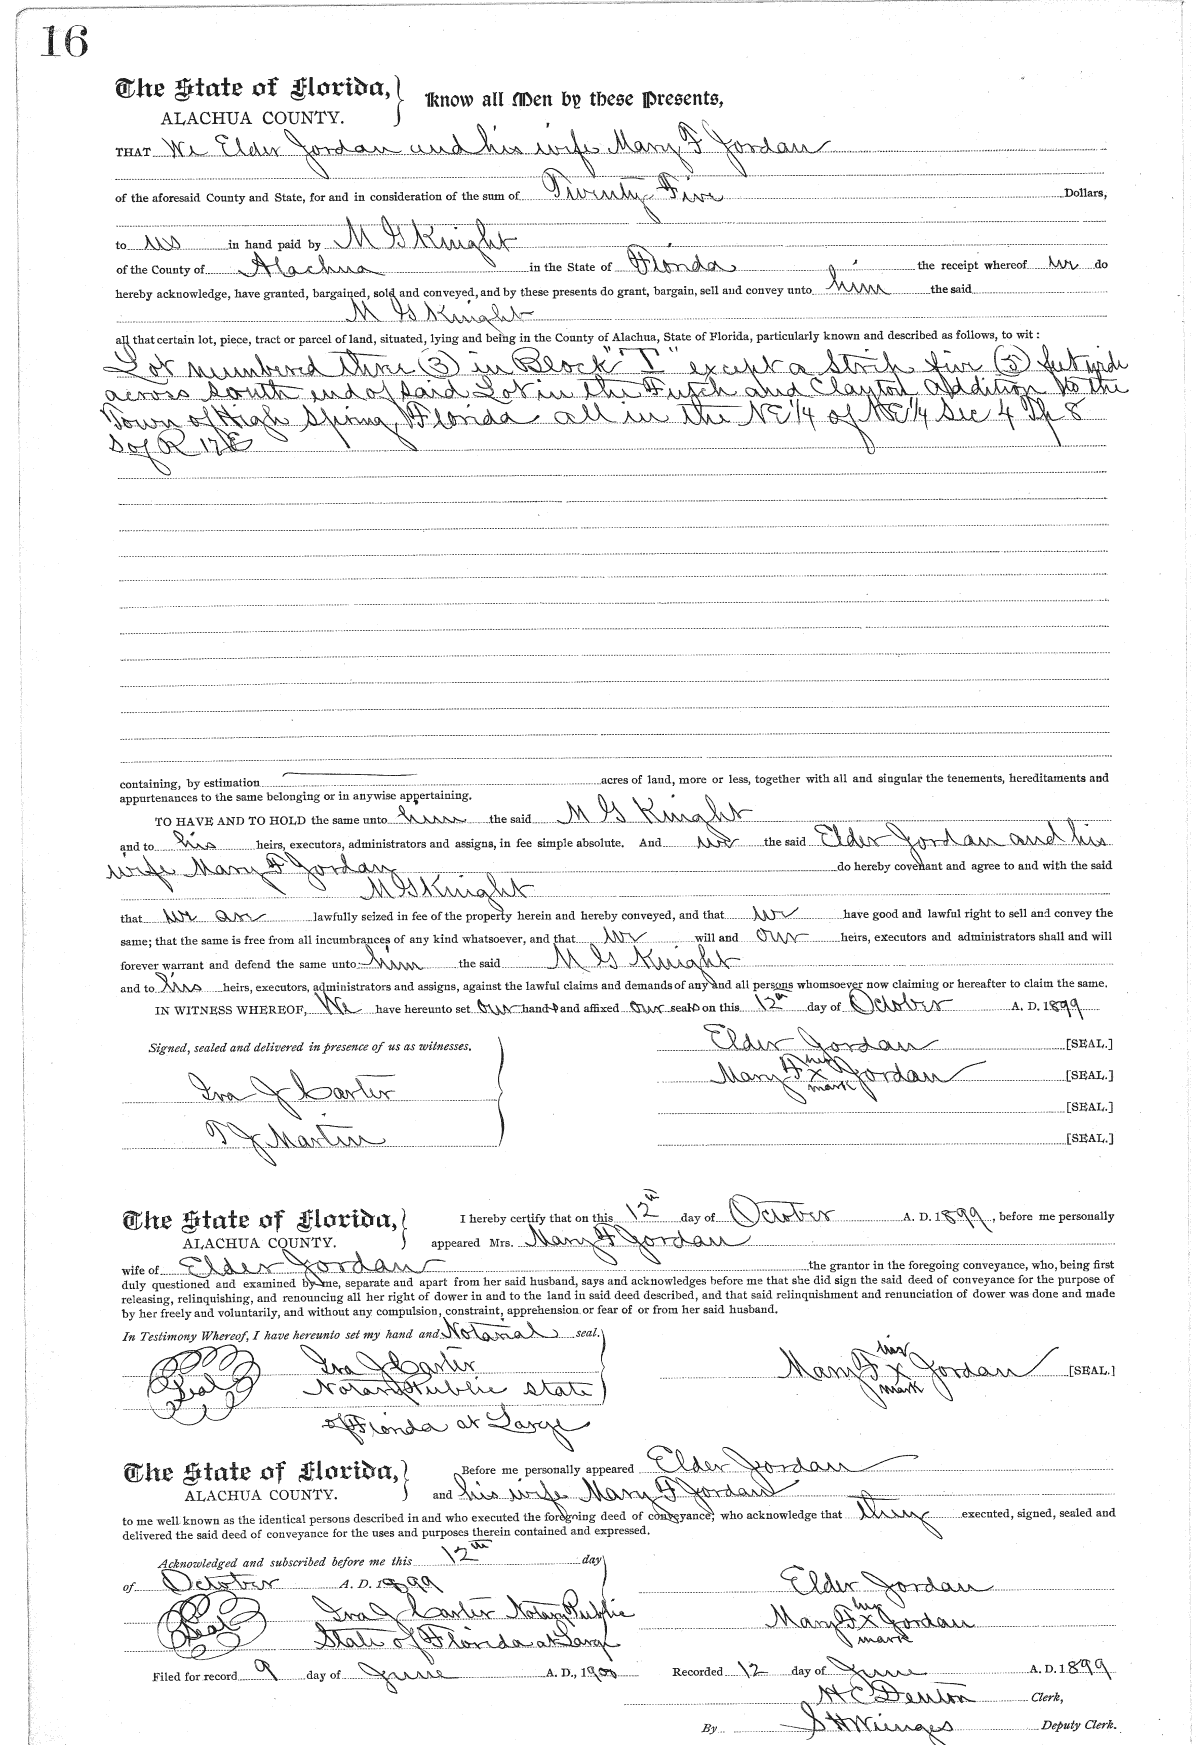 16
The State of Florida, Know all Men by these Presents,
ALACHUA COUNTY.
THAT We Elder Jordan and his wife Mary F Jordan
of the aforesaid County and State, for and in consideration of the sum of Twenty Five Dollars,
to us in hand paid by M G Knight
of the County of Alachua in the State of Florida the receipt whereof we do
hereby acknowledge, have granted, bargained, sold and conveyed, and by these presents do grant, bargain, sell and convey unto him the said
M G Knight
all that certain lot, piece, tract or parcel of land, situated, lying and being in the County of Alachua, State of Florida, particularly known and described as follows, to wit:
Lot numbered three (3) in Block "I" except a strip five (5) feet wide
across south end of said Lot in the Futch and Clayton Addition to the
Town of High Spring, Florida all in the NE 1/4 of NE 1/4 Sec 4 Tp 8
S of R 17 E
containing, by estimation acres of land, more or less, together with all and singular the tenements, hereditaments and
appurtenances to the same belonging or in anywise appertaining.
TO HAVE AND TO HOLD the same unto him the said M G Knight
and to his heirs, executors, administrators and assigns, in fee simple absolute. And we the said Elder Jordan and his
wife Mary F Jordan do hereby covenant and agree to and with the said
M G Knight
that we are lawfully seized in fee of the property herein and hereby conveyed, and that we have good and lawful right to sell and convey the
same; that the same is free from all incumbrances of any kind whatsoever, and that we will and our heirs, executors and administrators shall and will
forever warrant and defend the same unto him the said M G Knight
and to his heirs, executors, administrators and assigns, against the lawful claims and demands of any and all persons whomsoever now claiming or hereafter to claim the same.
IN WITNESS WHEREOF, We have hereunto set our hands and affixed our seals on this 12th day of October A. D. 1899
Signed, sealed and delivered in presence of us as witnesses.
Elder Jordan [SEAL.]
her
Mary F x Jordan [SEAL.]
mark
Ira J Carter
[SEAL.]
T J Martin
[SEAL.]
The State of Florida, I hereby certify that on this 12th day of October A. D. 1899, before me personally
ALACHUA COUNTY. appeared Mrs. Mary F Jordan
wife of Elder Jordan the grantor in the foregoing conveyance, who, being first
duly questioned and examined by me, separate and apart from her said husband, says and acknowledges before me that she did sign the said deed of conveyance for the purpose of
releasing, relinquishing, and renouncing all her right of dower in and to the land in said deed described, and that said relinquishment and renunciation of dower was done and made
by her freely and voluntarily, and without any compulsion, constraint, apprehension or fear of or from her said husband.
In Testimony Whereof, I have hereunto set my hand and Notarial seal.
Seal
Ira J Carter
Notary Public State
of Florida at Large
her
Mary F x Jordan [SEAL.]
mark
The State of Florida, Before me personally appeared Elder Jordan
ALACHUA COUNTY. and his wife Mary F Jordan
to me well known as the identical persons described in and who executed the foregoing deed of conveyance; who acknowledge that they executed, signed, sealed and
delivered the said deed of conveyance for the uses and purposes therein contained and expressed.
Acknowledged and subscribed before me this 12th day
of October A. D. 1899
Seal
Ira J Carter Notary Public
State of Florida at Large
Elder Jordan
her
Mary F x Jordan
mark
Filed for record 9 day of June A. D., 1900 Recorded 12 day of June A. D. 1899
H C Denton Clerk,
By S H Wienges Deputy Clerk.